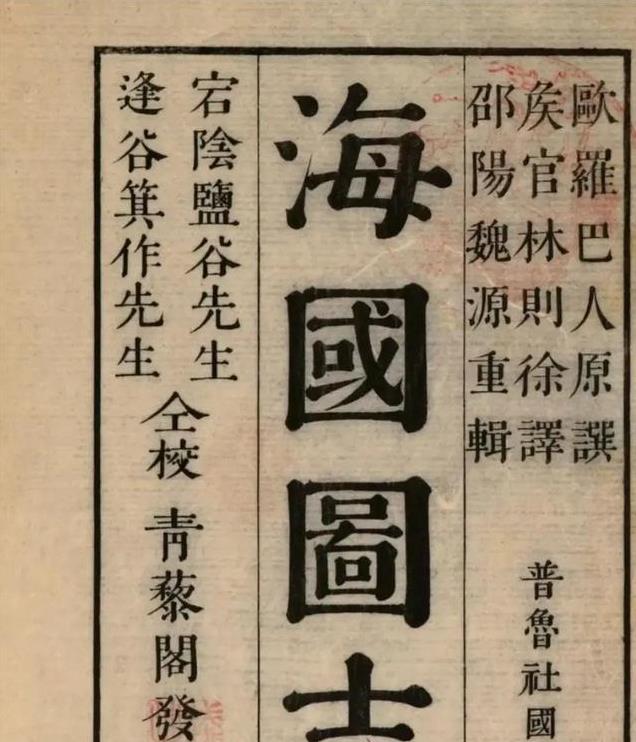 歐羅巴人原撰
矦官林則徐譯
邵陽魏源重輯
普魯社國
海國圖
宕陰鹽谷先生
逢谷箕作先生
仝校
青藜閣發